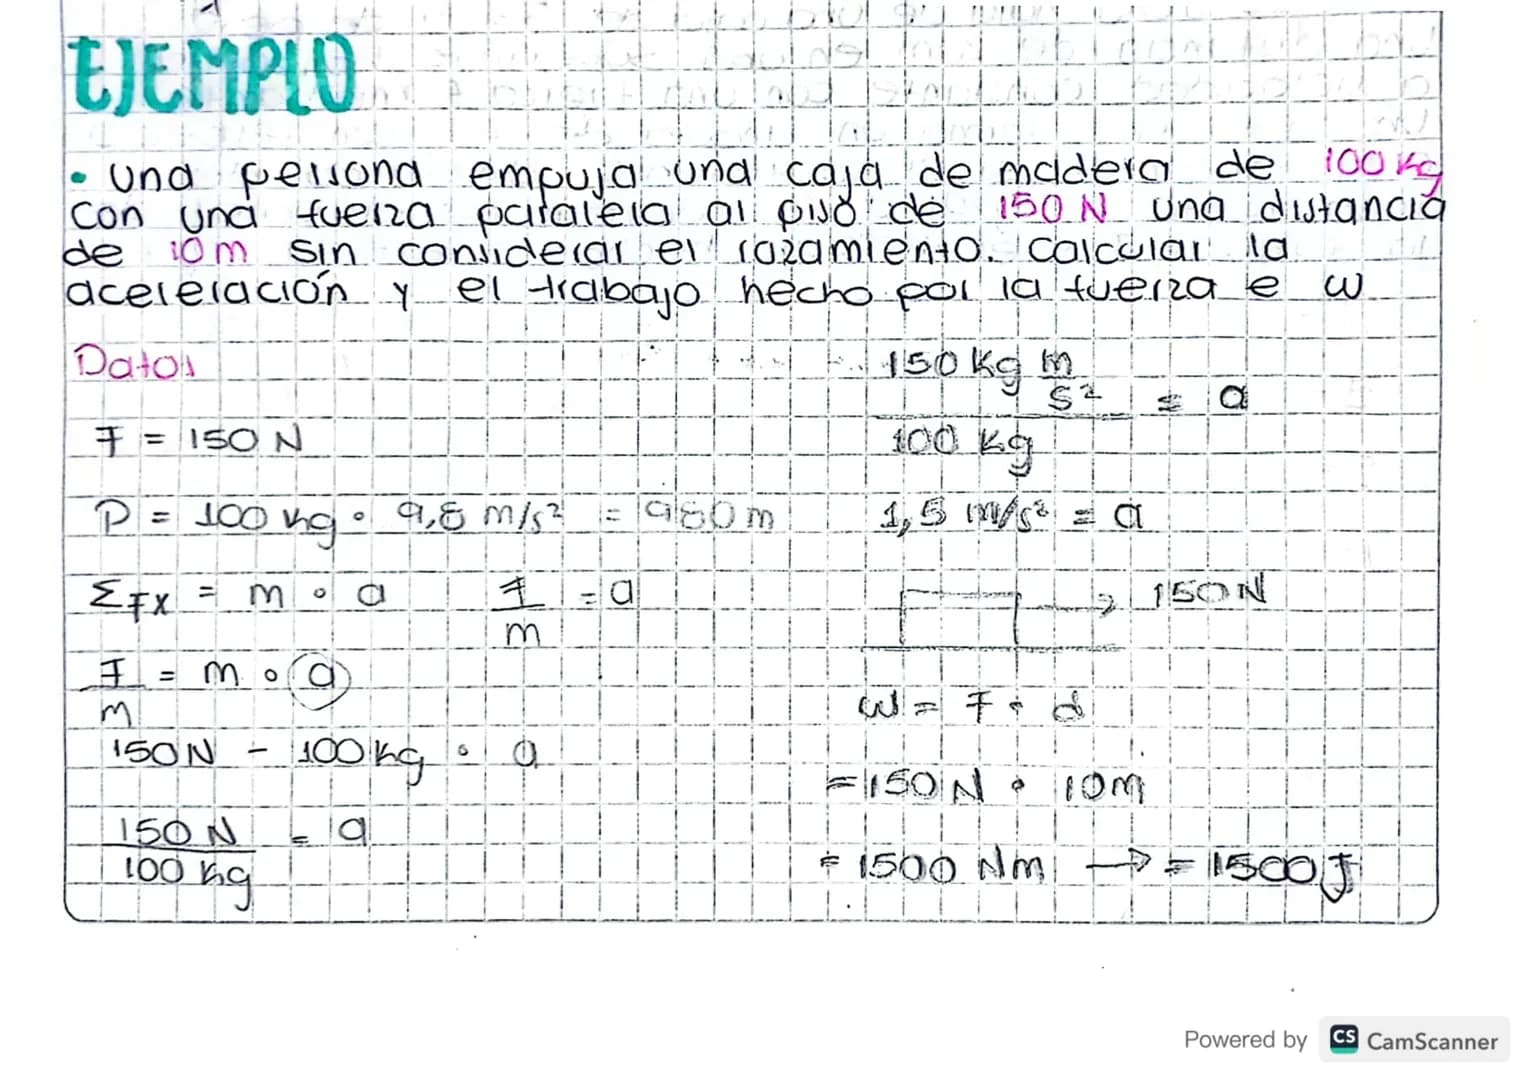 EJEMPLO
• una persona empuja una caja de madera de 100 kg
con una fuerza paralela al piso de 150 N una distancia
de 10 m sin considerar el rozamiento. calcular la
aceleración y el trabajo hecho por la fuerza e w
Datos
F = 150 N
P = 100 kg • 9,8 m/s² = 980 m
Σ Fx = m • a F/m = a
F/m = m • a
150 N - 100 kg • a
150 N / 100 kg = a
150 kg m/s² / 100 kg = a
1,5 m/s² = a
150 N
W = F • d
= 150 N • 10 m
= 1500 Nm → = 1500 J
Powered by CS CamScanner